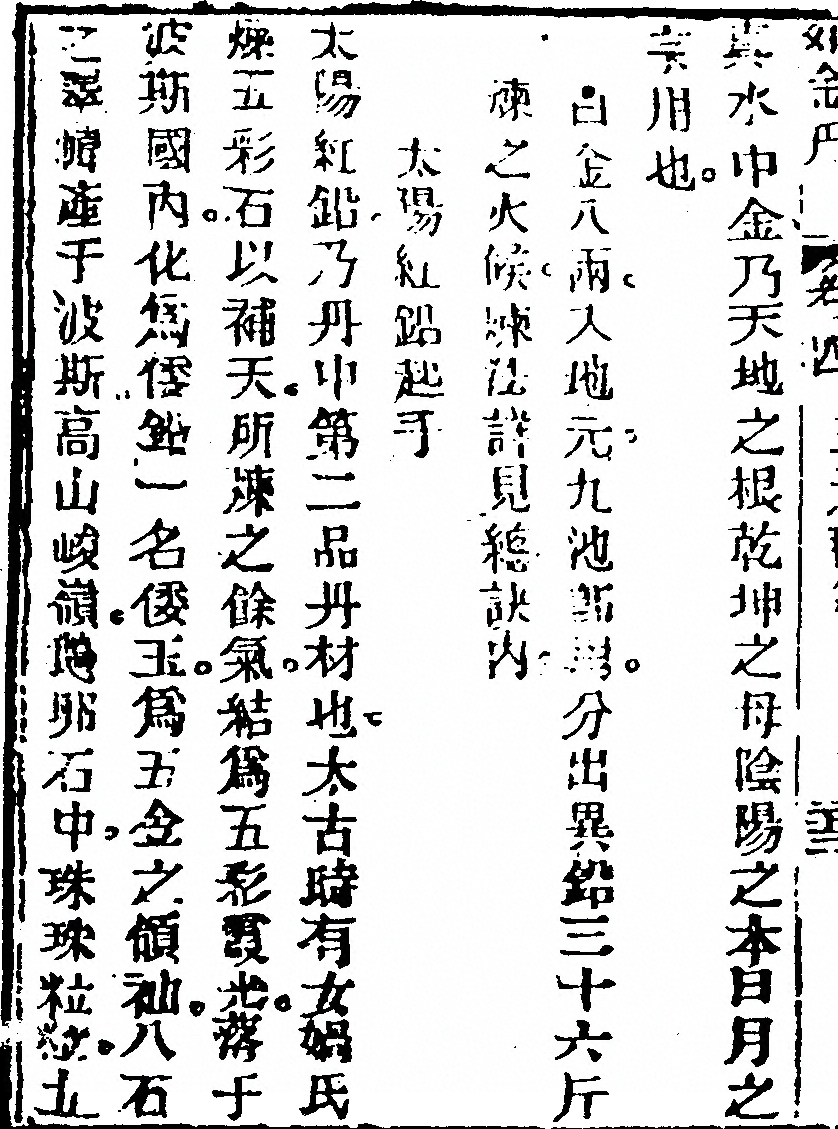 卷四
真水中金乃天地之根乾坤之母陰陽之本日月之
言用也。
白金八兩。入地元。九池。分出異鉛三十六斤
煉之火候。煉法詳見總訣內。
太陽紅鉛起手
太陽紅鉛。乃丹中第二品丹材也。太古時有女媧氏
煉五彩石以補天。所煉之餘氣。結爲五彩霞光。落于
波斯國內。化爲倭鉛一名倭玉。爲五金之領袖。八石
之翠幃產于波斯高山峻嶺。石中。珠珠粒粒。五